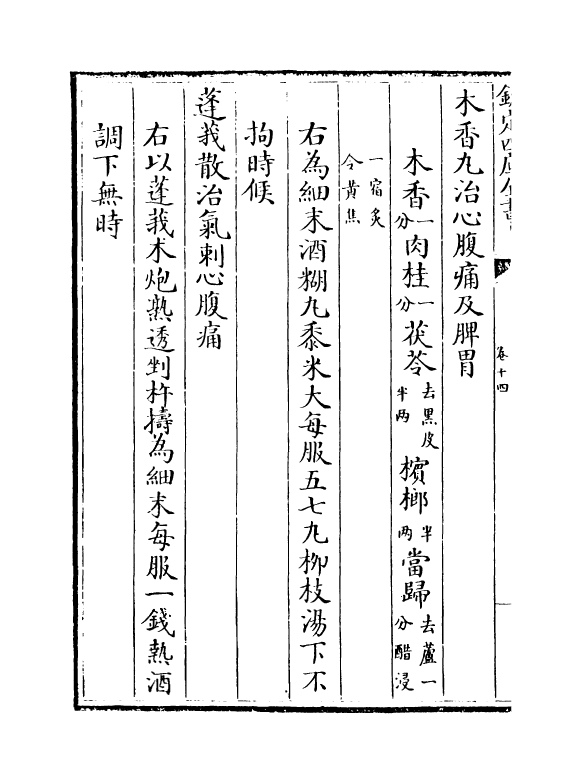 欽定四庫全書
卷十四
木香丸治心腹痛及脾胃
木香一分肉桂一分茯苓去黑皮半两檳榔半两當歸去蘆一分醋浸
一宿炙令黄焦
右為細末酒糊丸黍米大每服五七丸柳枝湯下不
拘時候
蓬莪散治氣刺心腹痛
右以蓬莪术炮熟透剉杵擣為細末每服一錢熱酒
調下無時